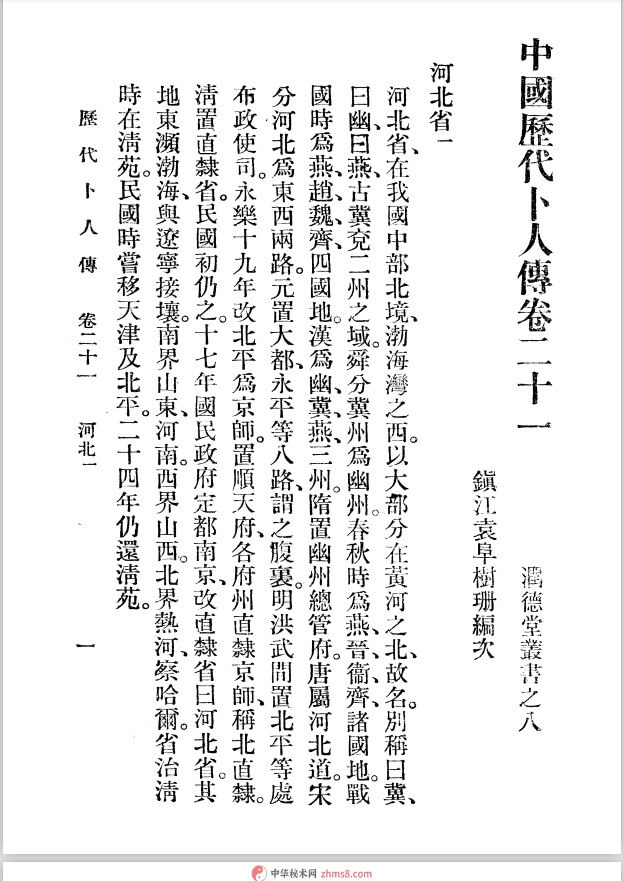 中國歷代卜人傳卷二十一
潤德堂叢書之八
鎮江袁阜樹珊編次
河北省一
河北省、在我國中部北境、渤海灣之西。以大部分在黃河之北、故名。別稱曰冀、
曰幽、曰燕、古冀兗二州之域。舜分冀州爲幽州。春秋時爲燕、晉、衞、齊、諸國地。戰
國時爲燕、趙、魏、齊、四國地。漢爲幽、冀、燕、三州。隋置幽州總管府。唐屬河北道。宋
分河北爲東西兩路。元置大都、永平等八路、謂之腹裏。明洪武間置北平等處
布政使司。永樂十九年改北平爲京師。置順天府、各府州直隸京師、稱北直隸。
淸置直隸省。民國初仍之。十七年國民政府定都南京、改直隸省曰河北省。其
地東瀕渤海、與遼寧接壤。南界山東、河南。西界山西。北界熱河、察哈爾。省治淸
時在淸苑。民國時嘗移天津及北平。二十四年仍還淸苑。
歷代卜人傳 卷二十一 河北一 一
中华秘术网 zhms8.com